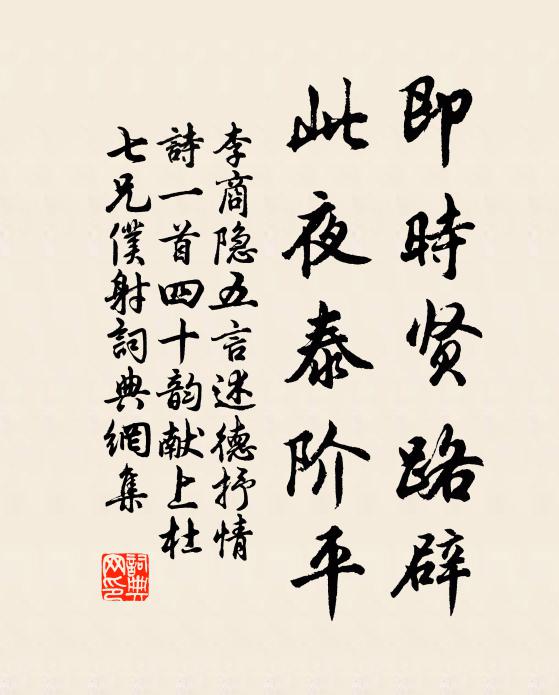 即時贤路辟
此夜泰阶平
李商隐五言述德抒情
詩一首四十韵献上杜
七兄僕射詞典網集
詞典
网印